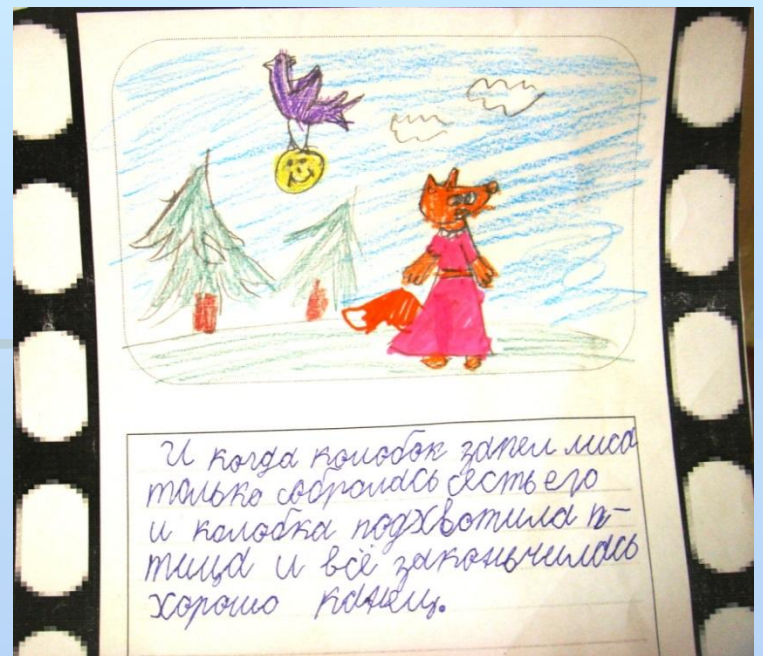 И когда колобок запел лиса
только собралась сесть его
и колобка подхвотила п-
тица и всё законьчилась
хорошо канец.